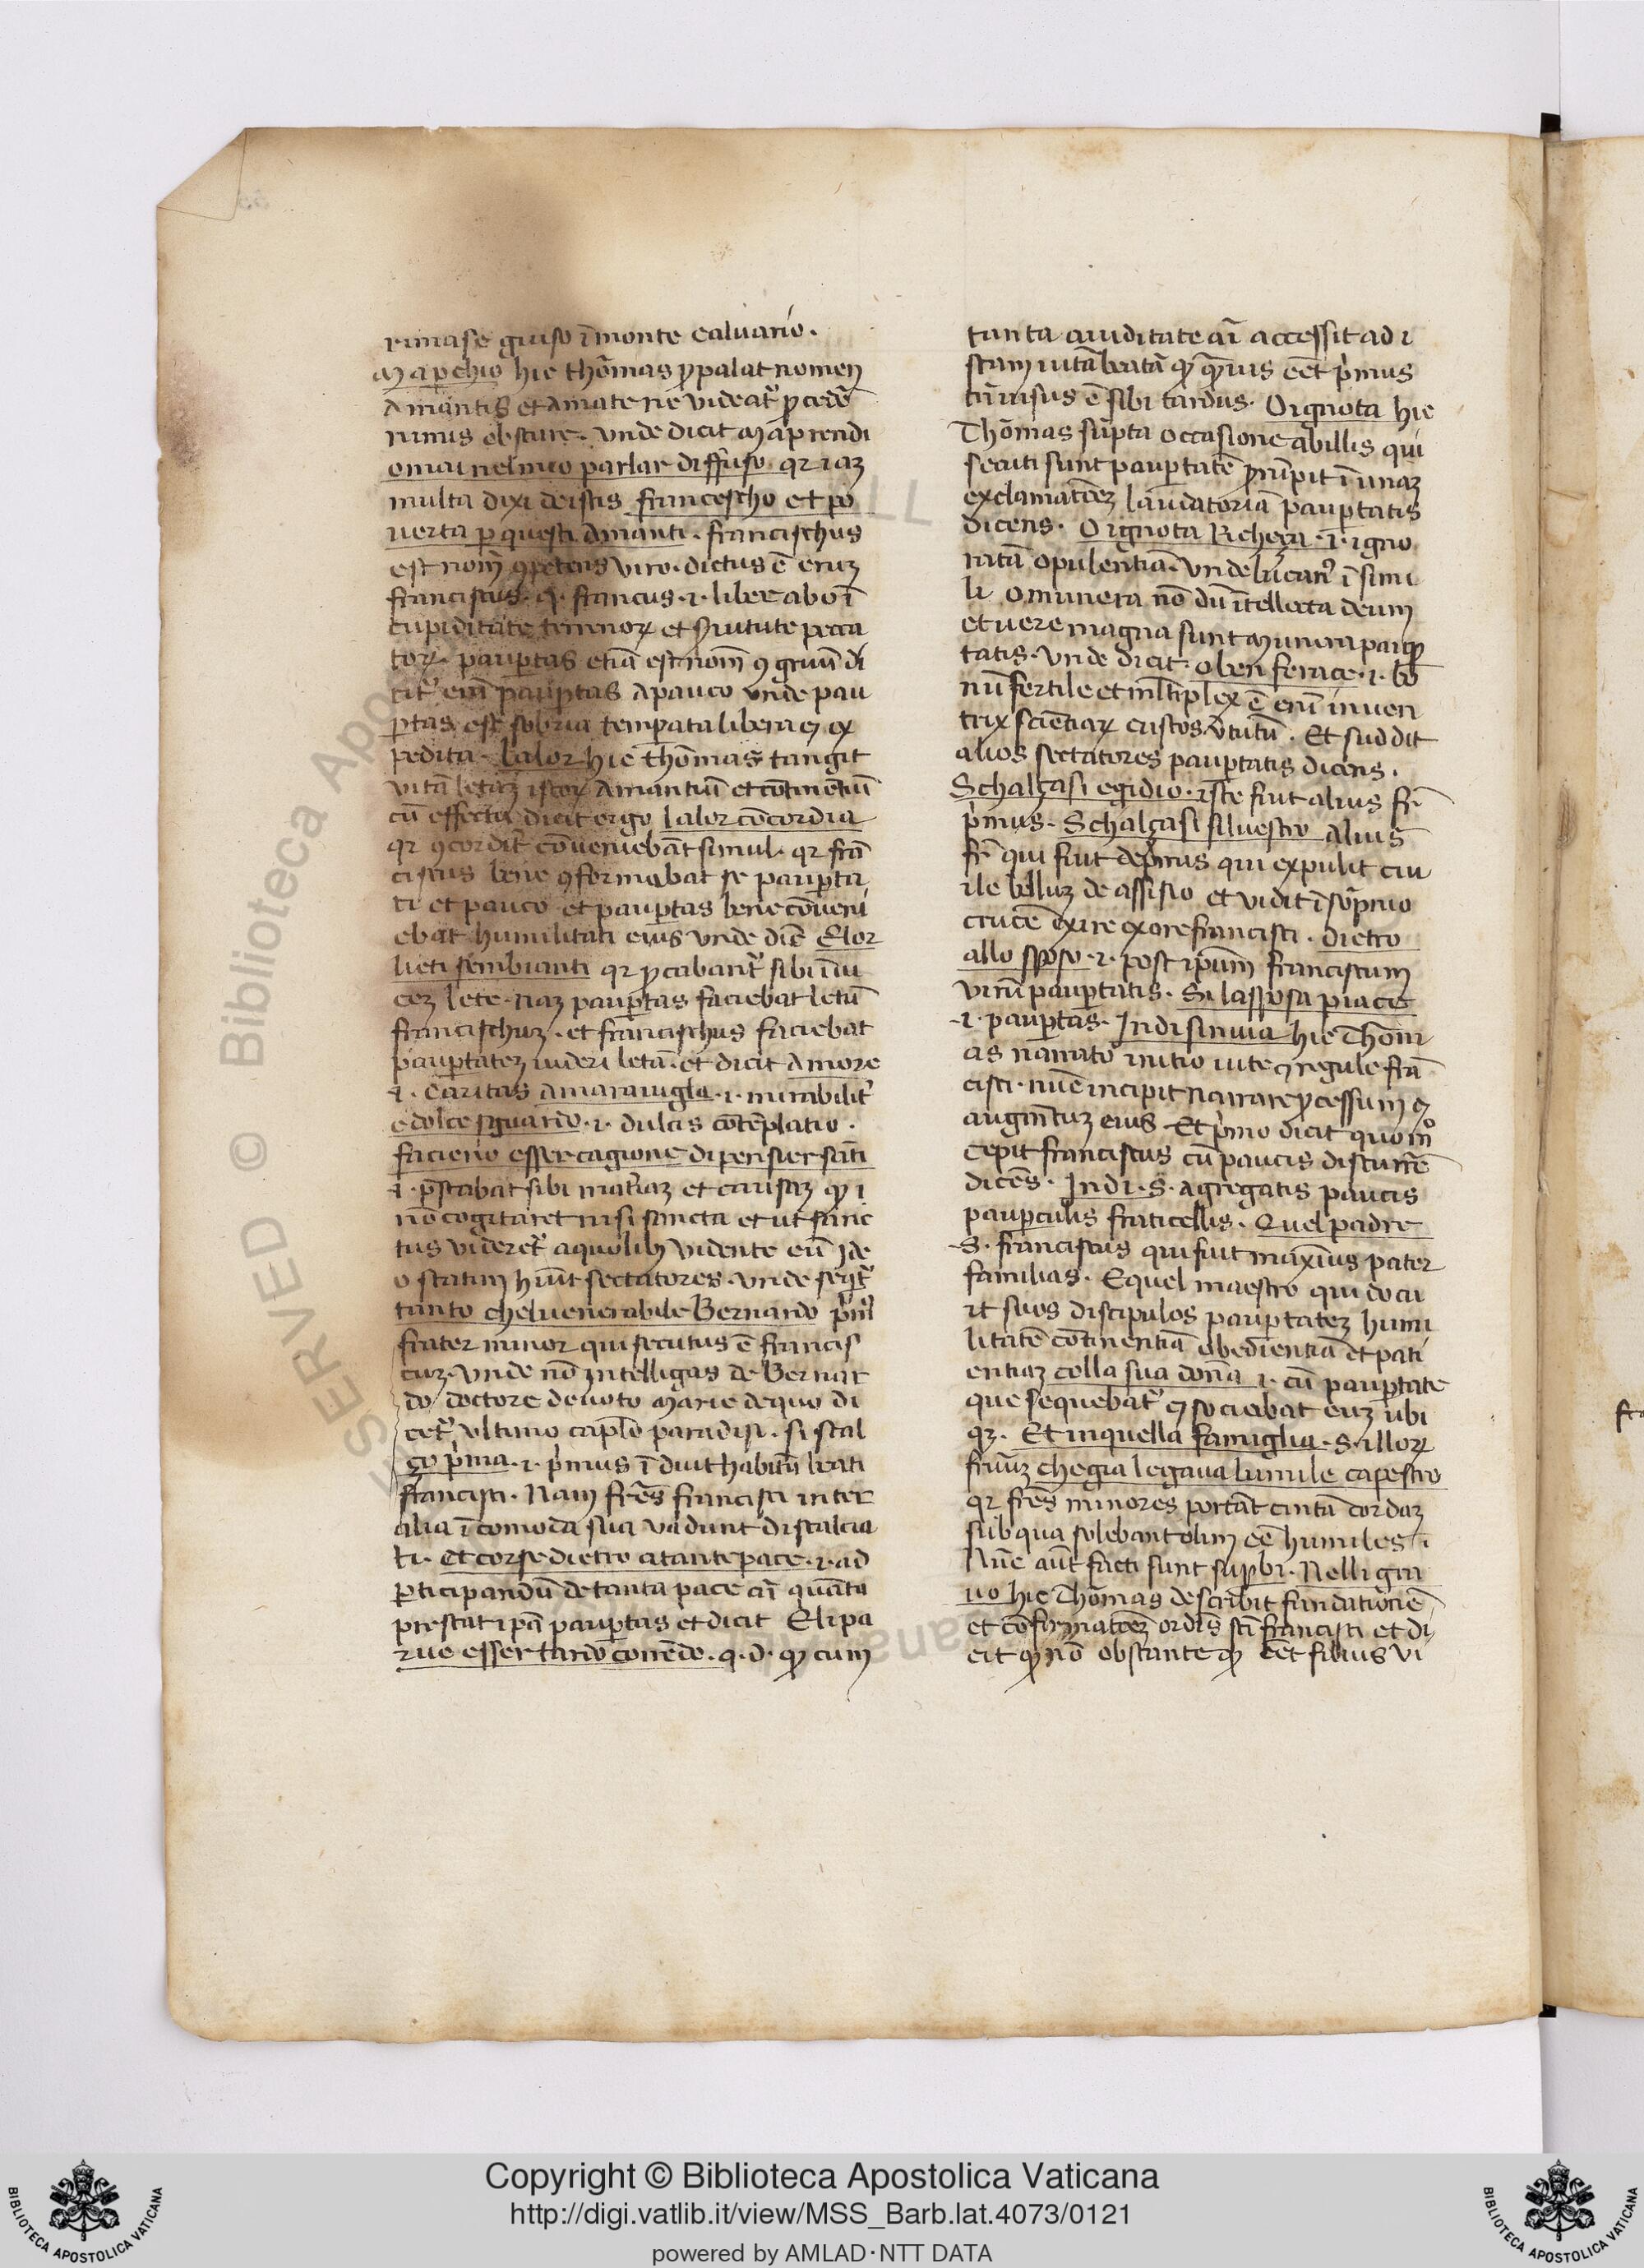 rimase giuso ī monte caluario.
Ma ꝑ chio hic thōmas ꝓpalat nomen
Amantis et Amate ne videat᷑ ꝓcedē
nimis obscure. vnde dicit Ma prendi
omai nel mio parlar diffuso. qr iaꝫ
multa dixi de istis francescho et po
uerta ꝑ questi Amanti. francischus
est nom̄ ꝯpetens viro. dictus ē eniꝫ
franciscus. q. francus .i. liber ab oī
cupiditate terrenoꝝ et ẜuitute pecca
toꝝ. pauꝑtas etiā est nom̄ ꝯgruū di
cit᷑ enī pauꝑtas a pauco vnde pau
ꝑtas est sobria temꝑata libera ⁊ ex
pedita. La lor hic thōmas tangit
vitā letaꝫ istoꝝ Amantiū et cōtinētiū
cū effectu dicit ergo la lor cōcordia
qr ꝯcordit᷑ cōueniebāt simul. qr frā
ciscus bene ꝯformabat se pauꝑta
ti et pauco et pauꝑtas bene cōueni
ebat humilitati eius vnde dic̄ E lor
lieti sembianti qr ꝓcabant᷑ sibi īui
ceꝫ lete. Naꝫ pauꝑtas faciebat letū
francischuꝫ. et francischus faciebat
pauꝑtateꝫ uideri letā. et dicit Amore
.i. caritas a marauiglia .i. mirabilit᷑
e dolce sguardo .i. dulcis cōtēplatio.
facieno esser cagione di pensier sāti
.i. p̄stabat sibi mat᷑iaꝫ et causaꝫ ꝙ i
nō cogitaret nisi sancta et ut sanc
tus videret᷑ a quolibꝫ vidente eū Ide
o statim hūit sectatores. vnde seqit᷑
tanto chel venerabile Bernardo p̄m̄
frater minor qui secutus ē francis
cuꝫ. vnde nō intelligas de Bernar
do doctore deuoto Marie de quo di
cet᷑ vltimo capl̄o paradisi. si scal
ço p̄ma .i. p̄mus ī diuit habitū beati
francisci. Nam fr̄es francisci inter
alia īcomoda sua vadunt discalcia
ti. Et corse dietro a tante pace .i. ad
ꝑticipandū de tanta pace aī quāta
prestat ipā pauꝑtas et dicit E li pa
rue esser tardo corrēdo. q. d. ꝙ cum
tanta auiditate aī accessit ad i
stam uitā beatā ꝙ quāuis eēt p̄mus
tn̄ uisus ē sibi tardus. O ignota hic
Thōmas sūpta occasione ab illis qui
secuti sunt pauꝑtatē ꝓrūpit ī unaꝫ
exclamatōeꝫ laudatoriā pauꝑtatis
dicens. O ignota Richeça .i. igno
ratā opulentiā. vnde lucan⁹ ī simi
li. O munera nō dū ītellecta deum
et uere magna sunt munera pauꝑ
tatis. vnde dicit. o ben ferace .i. bo
nū fertile et ml̄tiplex ē enī inuen
trix scientiaꝝ custos v̄tutū. Et suddit
alios sectatores pauꝑtatis dicēs.
Schalçasi egidio. iste fuit alius fr̄
p̄mus. Schalçasi siluestro alius
fr̄ qui fuit de p̄mis qui expulit ciu
ile belluꝫ de assisio et vidit ī sōpnio
crucē exire ex ore francisci. dietro
allo sposo .i. post ipūm franciscum
virū pauꝑtatis. Si la sposa piace
.i. pauꝑtas. Indi sinuia hic Thom
as narrato initio uite ⁊ regule frā
cisci. nūc incipit narrare ꝓcessum ⁊
augm̄tuꝫ eius Et p̄mo dicit quom̊
cepit franciscus cū paucis discurrē
dicēs. Indi .S. agregatis paucis
pauꝑculis fraticellis. Quel padre
.S. franciscus qui fuit maxīus pater
familias. E quel maestro qui docu
it suos discipulos pauꝑtateꝫ humi
litatē cōtinentiā obedientiā et pati
entiaꝫ colla sua dōna .i. cū pauꝑtate
que sequebat᷑ ⁊ sociebat euꝫ ubi
qꝫ. Et in quella famiglia .S. illoꝝ
fr̄uuꝫ che gia legaua lumile capestro
qr fr̄es minores portāt cintā cordaꝫ
sub qua solebant olim eē humiles.
Nūc aūt facti sunt suꝑbi. Nelli gra
uo hic Thōmas describit fundationē
et cōfirmatōeꝫ ordīs scī francisci et di
cit ꝙ nō obstante ꝙ eēt filius vi
Copyright © Biblioteca Apostolica Vaticana
http://digi.vatlib.it/view/MSS_Barb.lat.4073/0121
powered by AMLAD·NTT DATA
BIBLIOTECA APOSTOLICA VATICANA
BIBLIOTECA APOSTOLICA VATICANA